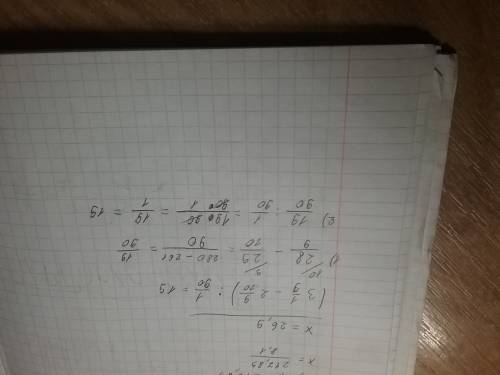 x = 217,89/8,1
x = 26,9
3 1/9 - 2 9/10) : 1/90 = 19
1) 28/9 - 29/10 = 280-261/90 = 19/90
2) 19/90 : 1/90 = 19·90/90·1 = 19/1 = 19